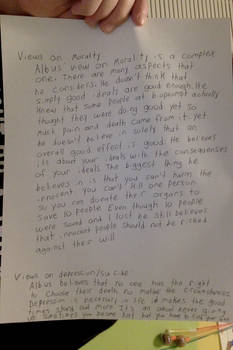 Views on Moralty.
Albus' view on Morality is a complex
one. There are many aspects that
he considers. He doesn't think that
simply good ideals are good enough. He
knew that some people at bioprompt actually
thought they were doing good yet so
much pain and death came from it. yet
he doesn't believe in solely that an
overall good effect is good. He believes
its about your ideals with the consequences
of your ideals. The biggest thing he
believes in is that you can't harm the
innocent. You can't kill one person
so you can donate their organs to
save 10 people. Even though 10 people
were saved and 1 lost he still believes
that innocent people should not be risked
against their will
Views on depression/suicide
Albus believes that no one has the right
to choose their death no matter the circumstances
Depression is necessary in life it makes the good
times stand out more. It's all about never giving
up. Sometimes you become but you have to